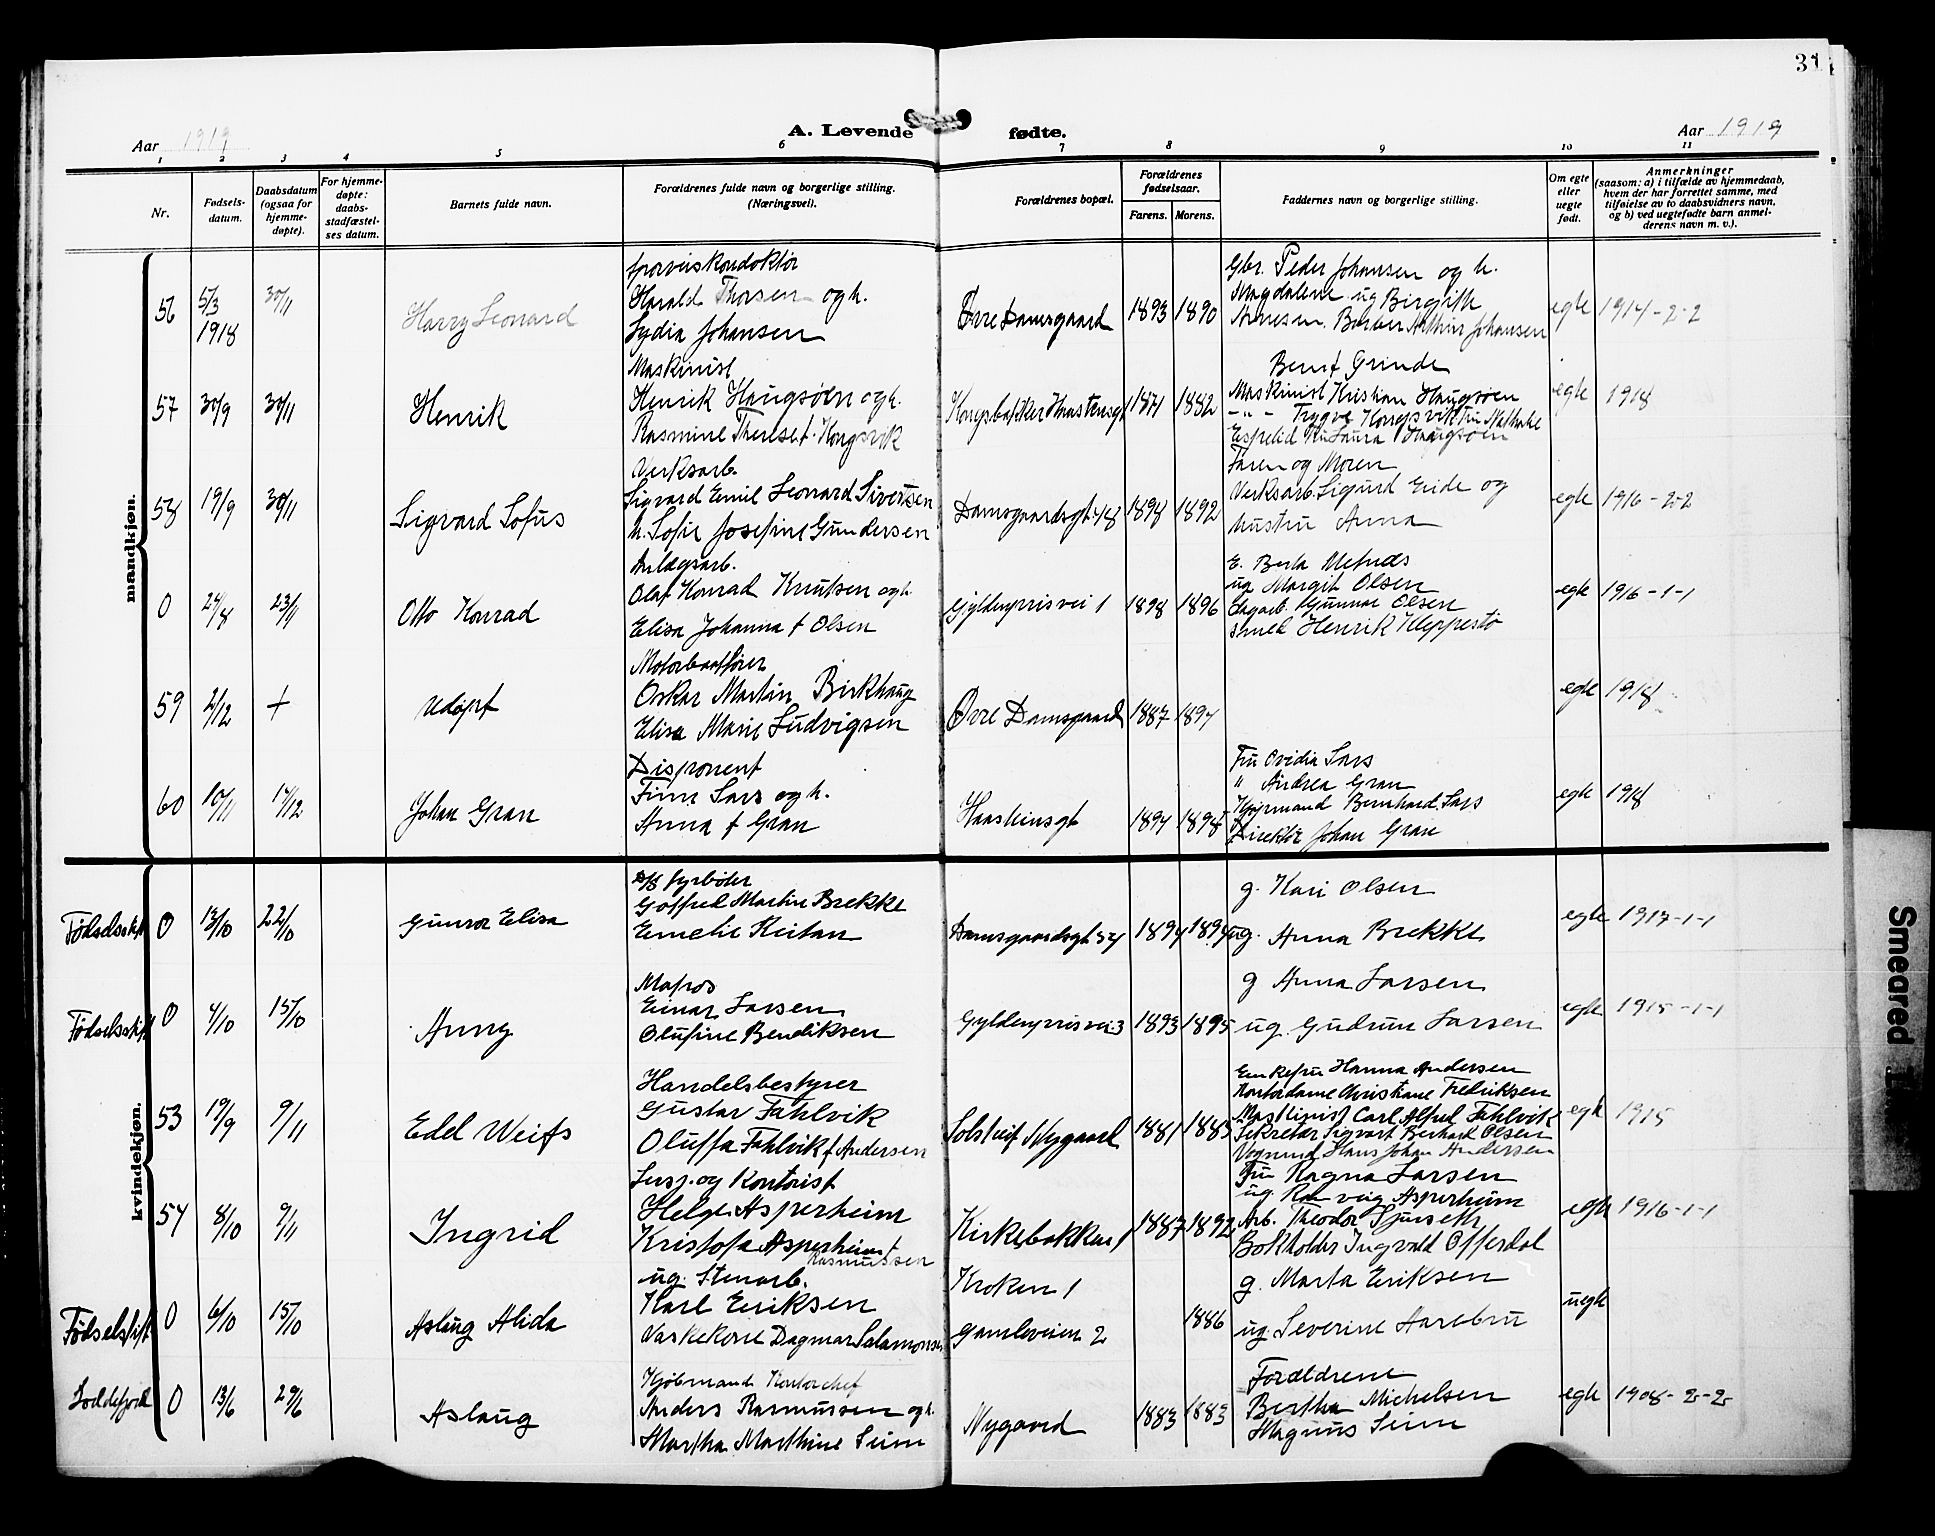 31
Aar 1919
A. Levende fødte.
Aar 1919
1 2 3 4 5 6 7 8 9 10 11
Nr.
Fødsels-
datum.
Daabsdatum
(ogsaa for
hjemme-
døpte).
For hjemme-
døpte:
daabs-
stadfæstel-
ses datum.
Barnets fulde navn.
Forældrenes fulde navn og borgerlige stilling.
(Næringsvei).
Forældrenes bopæl.
Forældrenes
fødselsaar.
Farens. Morens.
Faddernes navn og borgerlige stilling.
Om egte
eller
uegte
født.
Anmerkninger
(saasom: a) i tilfælde av hjemmedaab,
hvem der har forrettet samme, med
tilføielse av to daabsvidners navn,
og b) ved uegtefødte barn anmel-
derens navn m. v.).
mandkjøn.
56 5/3 1918 30/11
Harry Leonard
Sporveiskonduktør
Harald Thorsen og h.
Lydia Johansen
Øvre Damsgaard 1893 1890
Gbr. Peder Johansen og h.
Magdalene ug Birgith
Barber Arthur Johansen
egte 1914-2-2
57 30/9 30/11
Henrik
Maskinist
Henrik Haugsøen og h.
Rasmine Therese f. Kongsvik
1871 1882
Bernt Grinde
Maskinist Kristian Haugsøen
-"- Trygve Kongsvik Fru Nathalie
Espelid Fru Laura Haugsøen
egte 1918
58 19/9 30/11
Sigvard Sofus
Verksarb.
Sigvard Emil Leonard Sivertsen
h. Sofie Josefine Gundersen
Damsgaardsgt 48 1894 1892
Faren og Moren
Verksarb. Sigurd Eide og
hustru Anna
egte 1916-2-2
0 24/8 23/11
Otto Konrad
Anlægsarb.
Olaf Konrad Knutsen og h.
Elisa Johanna f Olsen
Gyldenprisvei 1 1898 1896
E. Berta
ug Margit Olsen
Gunnar Olsen
Smed Henrik Kleppestø
egte 1916-1-1
59 2/12 +
Udøpt
Motorbaatfører
Oskar Martin Birkhaug
Elisa Marie Ludvigsen
Øvre Damsgaard 1887 1894
egte 1918
60 10/11 14/12
Johan Gran
Disponent
Finn Lars og h.
Anna f Gran
Haasteinsgt 1894 1898
Fru Ovidia Lars
" Andrea Gran
Kjøpmand Bernhard Lars
Direktør Johan Gran
egte 1918
kvindekjøn.
Fødselsstift 0 13/10 22/10
Gunvor Elisa
D/S fyrbøter
Gotfred Martin Brekke
Emelie Reitan
Damsgaardsgt 54 1894 1894
g. Kari Olsen
ug. Anna Brekke
egte 1917-1-1
Fødselsstift 0 4/10 15/10
Anny
Matros
Einar Larsen
Olufine Bendiksen
Gyldenprisvei 3 1893 1895
g Anna Larsen
ug. Gudrun Larsen
egte 1915-1-1
53 19/9 9/11
Edel Weiss
Handelsbestyrer
Gustav Fahlvik
Oluffa Fahlvik f Andersen
Solstrif Nygaard 1881 1885
Enkefru Hanna Andersen
Kontordame Christiane Fredriksen
Maskinist Carl Alfred Fahlvik
Sekretær Sigvart Berhard Olsen
Vognmd Hans Johan Andersen
egte 1915
54 8/10 9/11
Ingrid
Insp. og Kontorist
Helge Asperheim
Kristofa Asperheim f
Rasmussen
Kirkebakken 1 1887 1892
Fru Ragna Larsen
ug. Ranveig Asperheim
Arb. Theodor Sjurseth
Bokholder Ingvald Offerdal
egte 1916-1-1
Fødselsstift 0 6/10 15/10
Aslaug Alida
ug. Stenarb.
Karl Eriksen
Vaskekone Dagmar Salamonsen
Kroken 1
Gamleveien 2
1886
g. Marta Eriksen
ug. Severine Aarebru
uegte
Soldefjord 0 13/6 29/6
Aslaug
Kjøbmand Kontorchef
Anders Rasmussen og h.
Martha Marthine Seim
Nygaard 1883 1883
Forældrene
Bertha Michelsen
Magnus Seim
egte 1908-2-2
Smeared